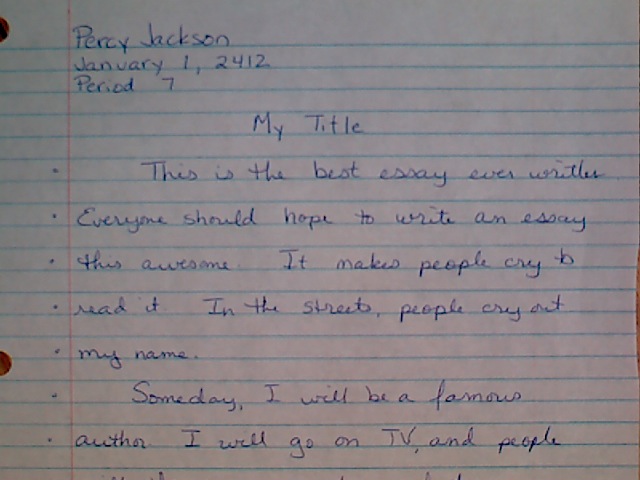 Percy Jackson
January 1, 2412
Period 7
My Title
This is the best essay ever written
Everyone should hope to write an essay
this awesome. It makes people cry to
read it. In the streets, people cry out
my name.
Someday, I will be a famous
author. I will go on TV, and people